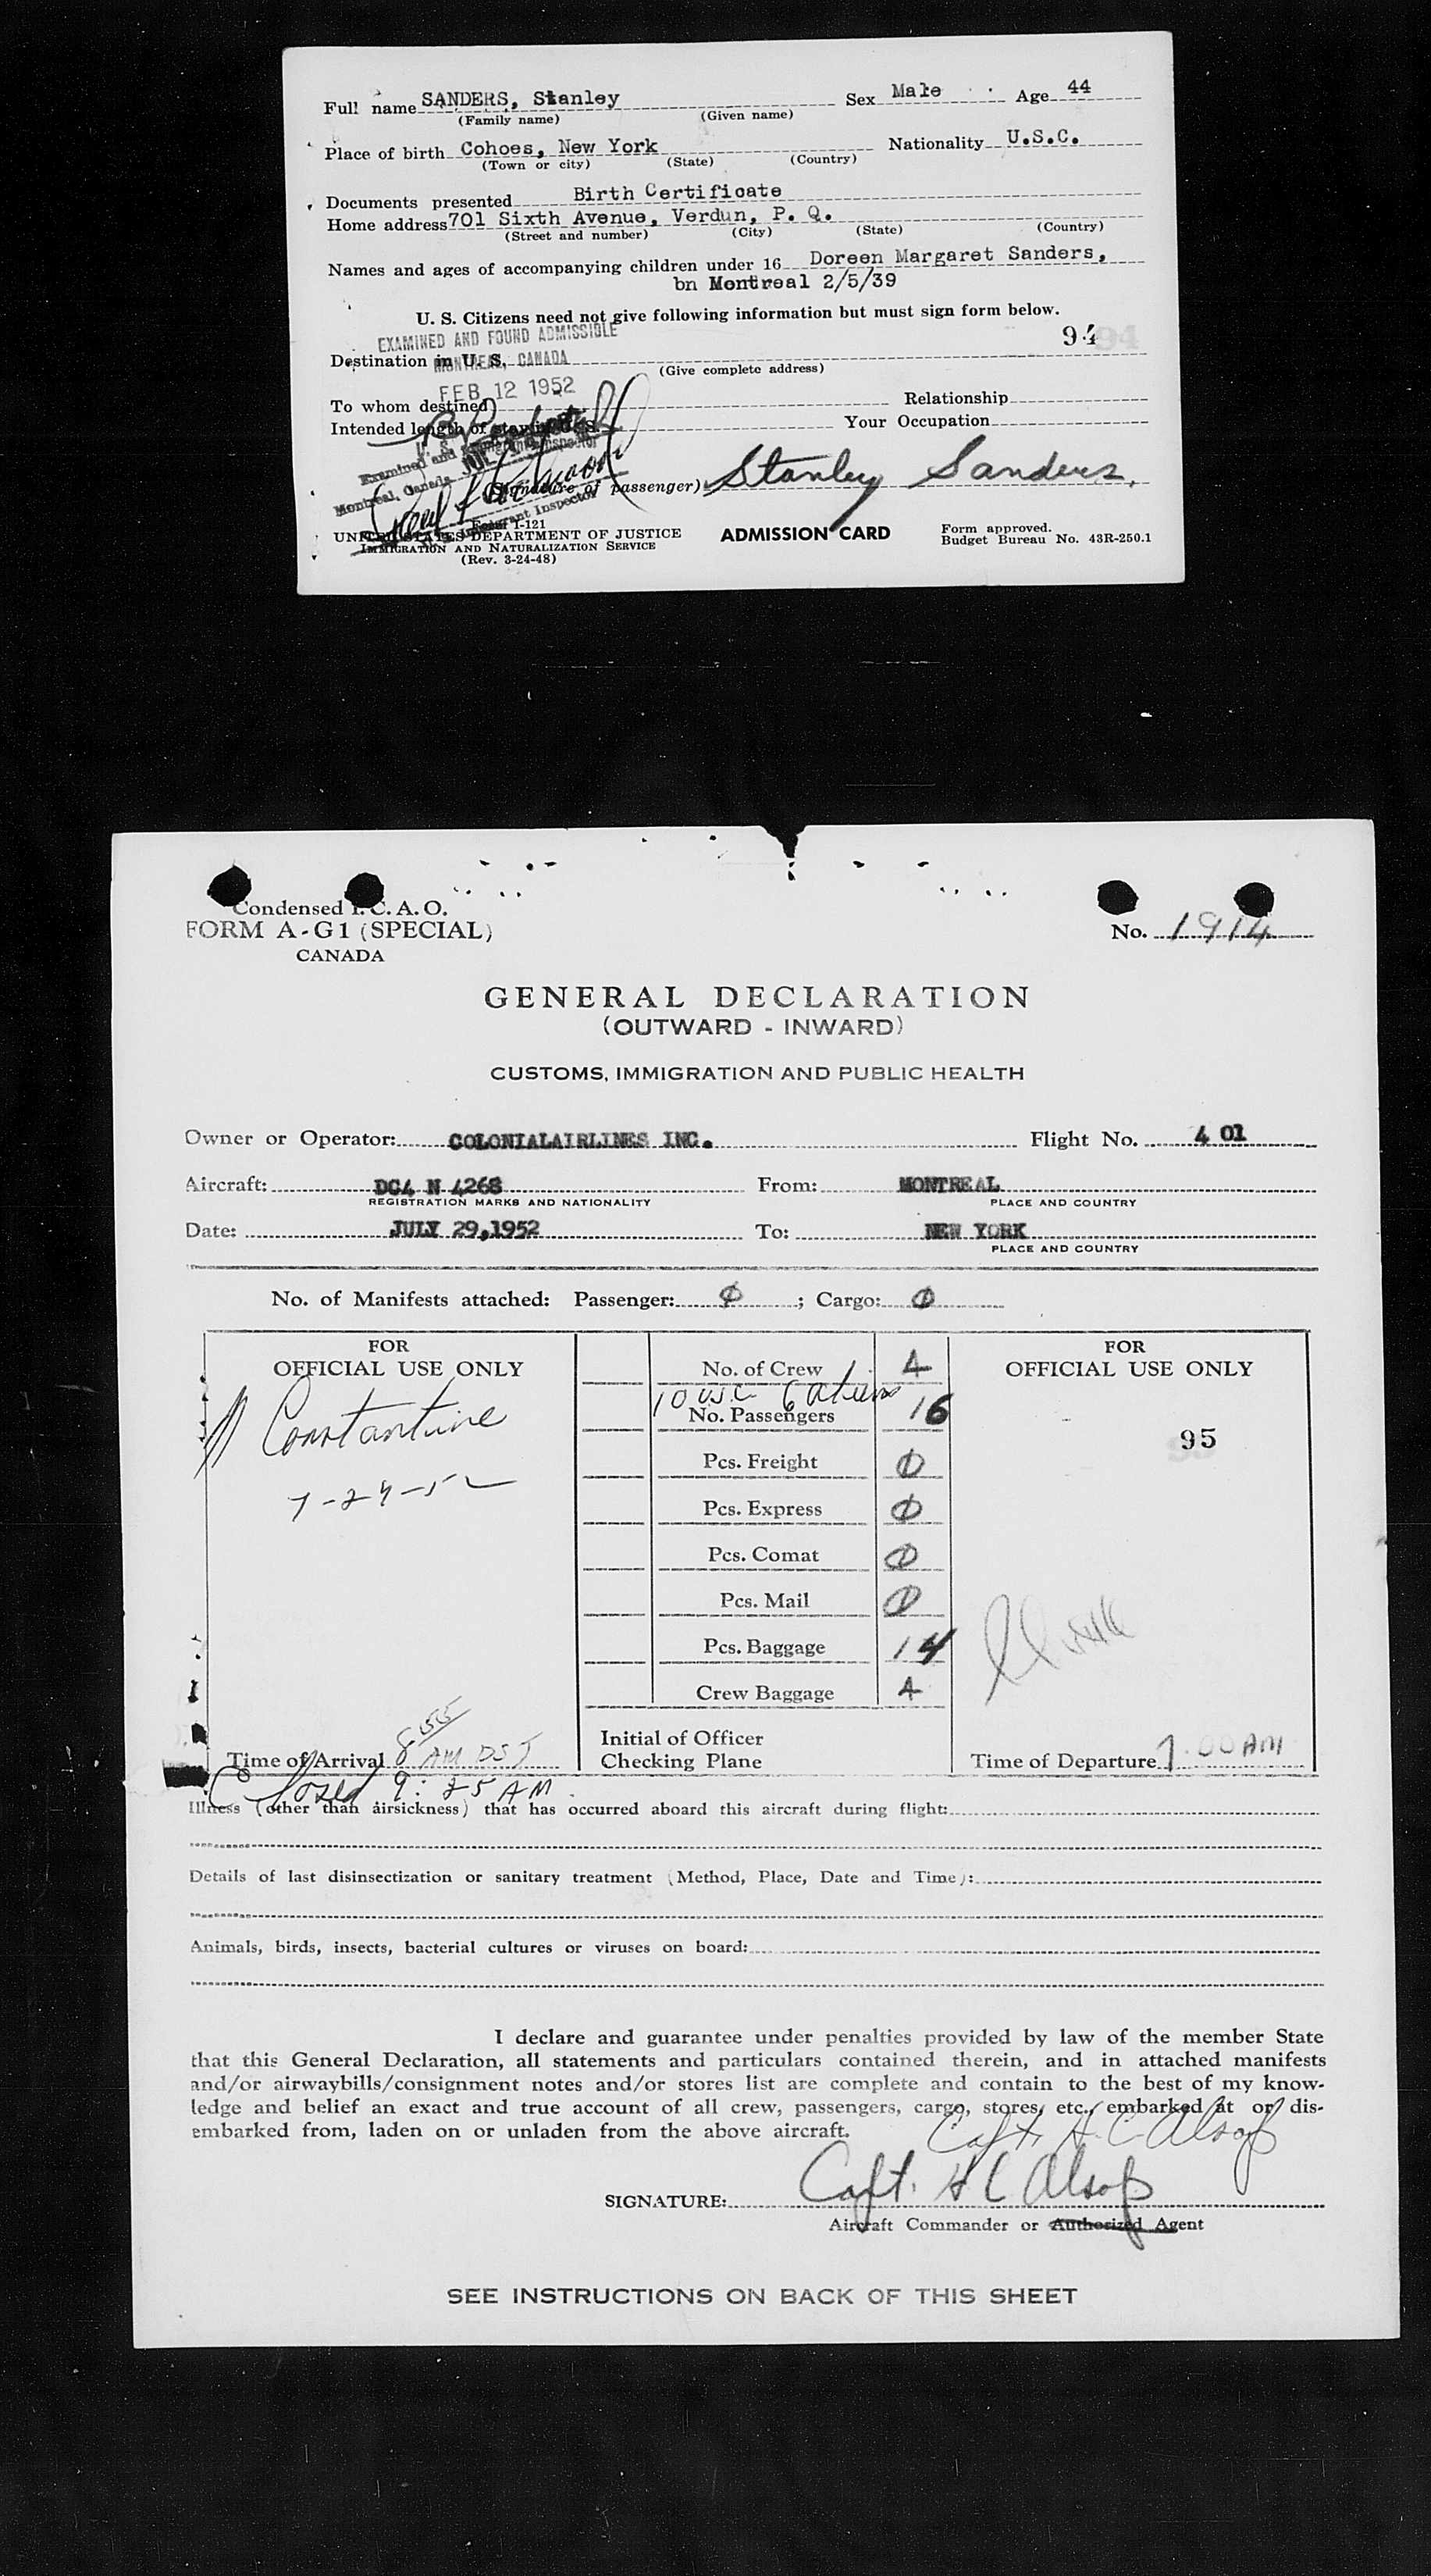 Full name SANDERS, Stanley Sex Male Age 44
(Family name) (Given name)
Place of birth Cohoes, New York Nationality U.S.C.
(Town or city) (State) (Country)
Documents presented Birth Certificate
Home address 701 Sixth Avenue, Verdun, P. Q.
(Street and number) (City) (State) (Country)
Names and ages of accompanying children under 16 Doreen Margaret Sanders,
bn Montreal 2/5/39
U. S. Citizens need not give following information but must sign form below.
EXAMINED AND FOUND ADMISSIBLE
94
Destination in U. S.
MONTREAL, CANADA
(Give complete address)
FEB 12 1952
To whom destined Relationship
Intended length of stay in U. S. Your Occupation
Examined and
Montreal, Canada
Immigrant Inspector
(Signature of passenger) Stanley Sanders.
Form I-121
UNITED STATES DEPARTMENT OF JUSTICE ADMISSION CARD Form approved.
IMMIGRATION AND NATURALIZATION SERVICE Budget Bureau No. 43R-250.1
(Rev. 3-24-48)
Condensed I. C. A. O.
FORM A-G1 (SPECIAL) No. 1914
CANADA
GENERAL DECLARATION
(OUTWARD - INWARD)
CUSTOMS, IMMIGRATION AND PUBLIC HEALTH
Owner or Operator: COLONIALAIRLINES INC. Flight No. 4 01
Aircraft: DC4 N 4268 From: MONTREAL
REGISTRATION MARKS AND NATIONALITY PLACE AND COUNTRY
Date: JULY 29,1952 To: NEW YORK
PLACE AND COUNTRY
No. of Manifests attached: Passenger: 0 ; Cargo: 0
FOR No. of Crew 4 FOR
OFFICIAL USE ONLY OFFICIAL USE ONLY
10 USC 6 Aliens
Constantine No. Passengers 16
95
Pcs. Freight 0
7-29-52
Pcs. Express 0
Pcs. Comat 0
Pcs. Mail 0
Pcs. Baggage 14
Crew Baggage 4
Initial of Officer
Time of Arrival 8 55 AM DST Checking Plane Time of Departure 7:00 AM
Closed 9:25 AM
Illness (other than airsickness) that has occurred aboard this aircraft during flight:
Details of last disinsectization or sanitary treatment (Method, Place, Date and Time):
Animals, birds, insects, bacterial cultures or viruses on board:
I declare and guarantee under penalties provided by law of the member State
that this General Declaration, all statements and particulars contained therein, and in attached manifests
and/or airwaybills/consignment notes and/or stores list are complete and contain to the best of my know-
ledge and belief an exact and true account of all crew, passengers, cargo, stores, etc., embarked at or dis-
embarked from, laden on or unladen from the above aircraft.
Capt. H. C. Alsop
SIGNATURE: Capt. H C Alsop
Aircraft Commander or Authorized Agent
SEE INSTRUCTIONS ON BACK OF THIS SHEET